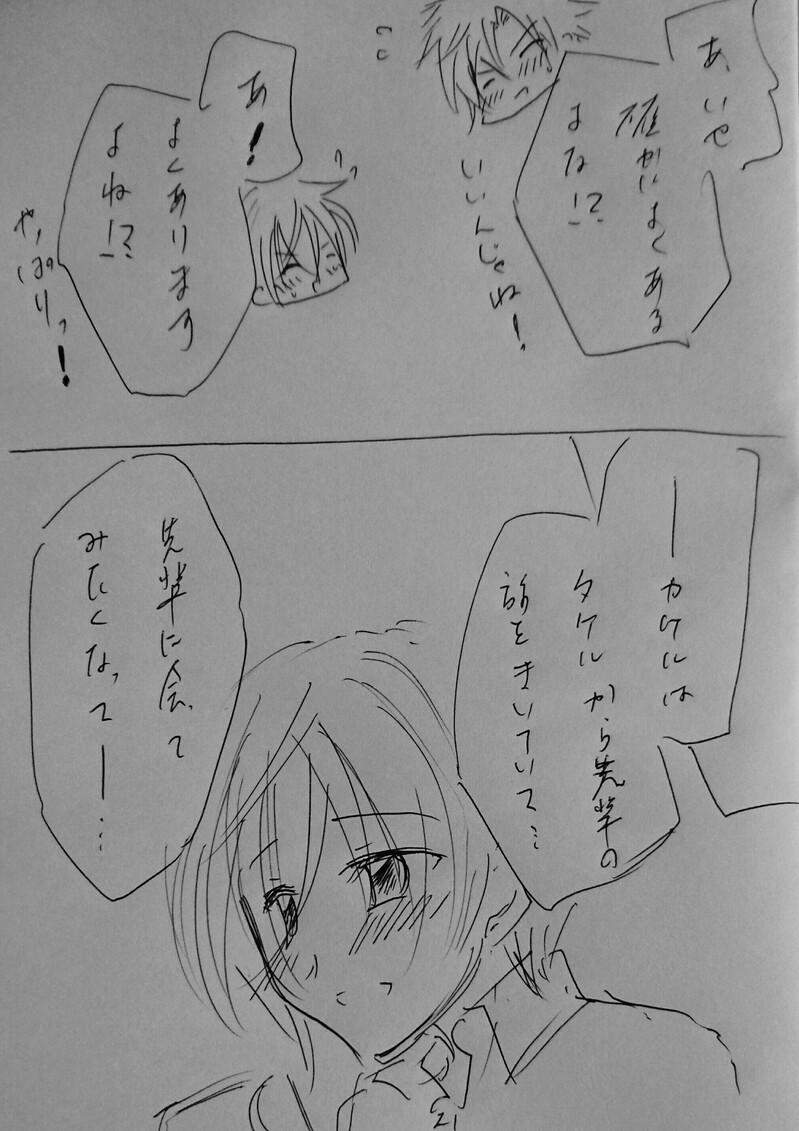 あ、いや
確かによくある
よな!?
いいんじゃね!
あ!
よくあります
よね!?
やっぱりっ!
——カケルは
タケルから先輩の
話をきいていて…
先輩に会って
みたくなって——…
21